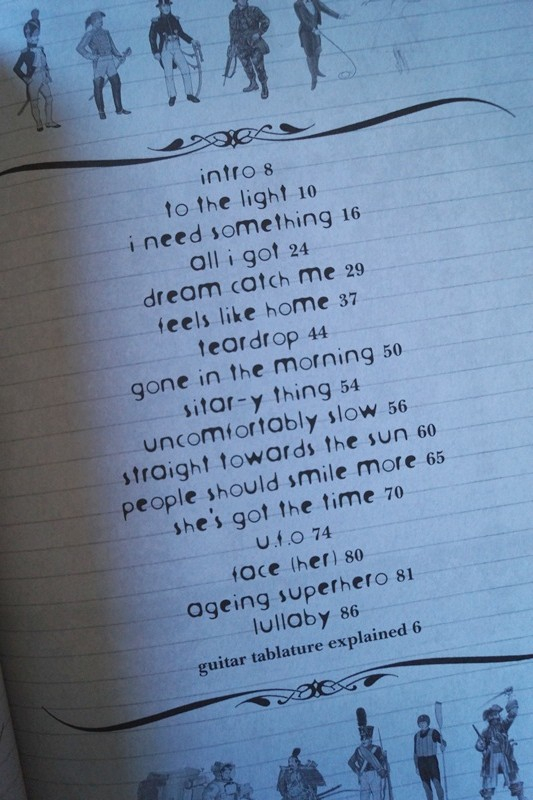 intro 8
to the light 10
i need something 16
all i got 24
dream catch me 29
feels like home 37
teardrop 44
gone in the morning 50
sitar-y thing 54
uncomfortably slow 56
straight towards the sun 60
people should smile more 65
she's got the time 70
u.f.o 74
face (her) 80
ageing superhero 81
lullaby 86
guitar tablature explained 6